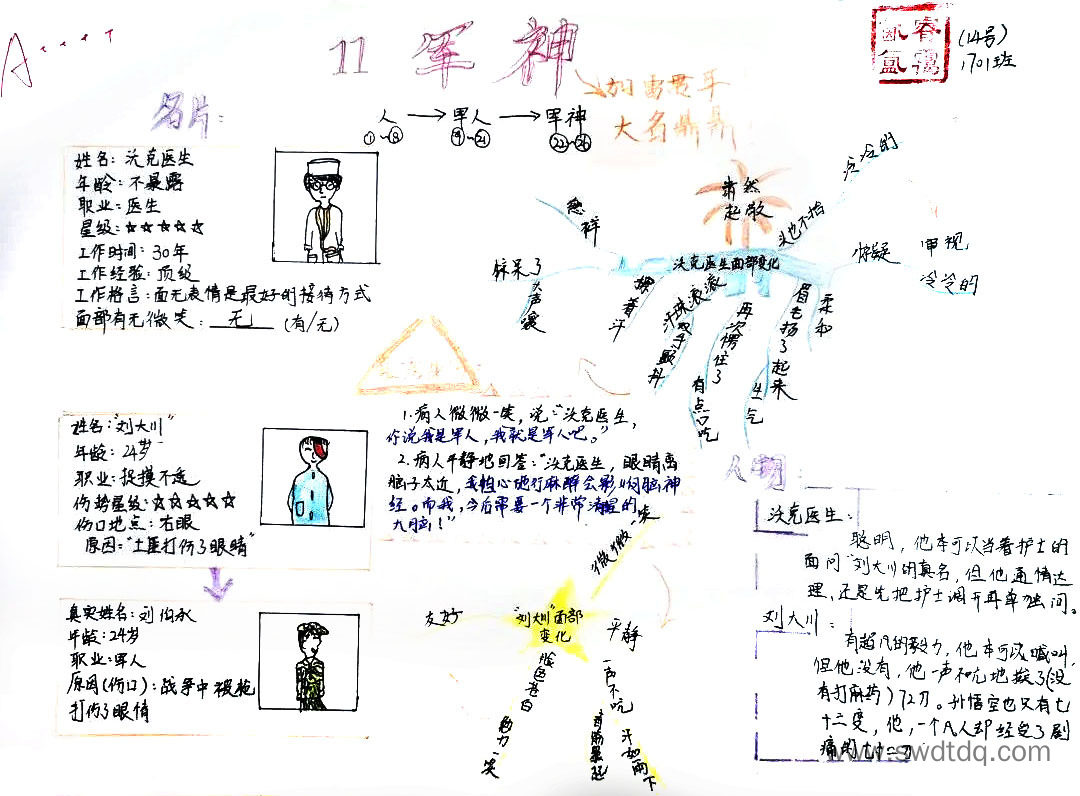 A
(14号)
1701班
11 军神
如雷贯耳
大名鼎鼎
人→军人→军神
①~⑧
名片:
姓名:沃克医生
年龄:不暴露
职业:医生
星级:☆☆☆☆☆
工作时间:30年
工作经验:顶级
工作格言:面无表情是最好的接待方式
面部有无微笑:无(有/无)
姓名:"刘大川"
年龄:24岁
职业:捉摸不透
伤势星级:☆☆☆☆☆
伤口地点:右眼
原因:"土匪打伤了眼睛"
真实姓名:刘伯承
年龄:24岁
职业:军人
原因(伤口):战争中被枪
打伤了眼情
沃克医生面部变化
肃然
起敬
头也不抬
冷冷的
审视
冷冷的
柔和
眉毛扬了起来
生气
再次愣住了
有点口吃
汗珠滚滚
双手颤抖
擦着汗
惊呆了
大声嚷
慈祥
1.病人微微一笑,说:"沃克医生,
你说我是军人,我就是军人吧。"
2.病人平静地回答:"沃克医生,眼睛离
脑子太近,我担心施行麻醉会影响脑神
经。而我,今后需要一个非常清醒的
大脑!"
"刘大川"面部
变化
微微一笑
平静
一声不吭
汗如雨下
青筋暴起
脸色苍白
勉力一笑
友好
人物:
沃克医生:
聪明,他本可以当着护士的
面问"刘大川"的真名,但他通情达
理,还是先把护士调开再单独问。
刘大川:
有超凡的毅力,他本可以喊叫,
但他没有,他一声不吭地挨了(没
有打麻药)72刀。孙悟空也只有七
十二变,他,一个凡人却经受了剧
痛的七十二刀
www.swdtdq.com